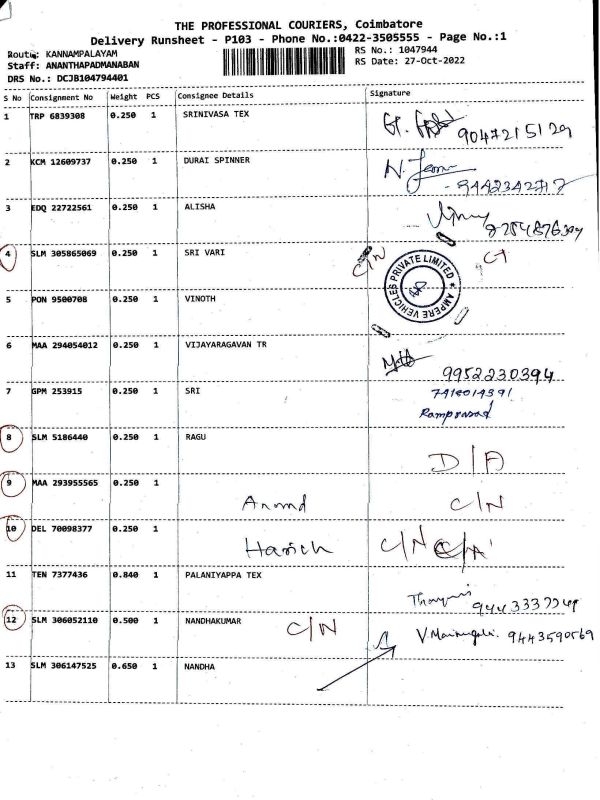 THE PROFESSIONAL COURIERS, Coimbatore
Delivery Runsheet - P103 - Phone No.:0422-3505555 - Page No.:1
Route: KANNAMPALAYAM
RS No.: 1047944
Staff: ANANTHAPADMANABAN
RS Date: 27-Oct-2022
DRS No.: DCJB104794401
S No Consignment No Weight PCS Consignee Details Signature
1 TRP 6839308 0.250 1 SRINIVASA TEX
9047215129
2 KCM 12609737 0.250 1 DURAI SPINNER
3 EDQ 22722561 0.250 1 ALISHA
4 SLM 305865069 0.250 1 SRI VARI C/N
AMPERE VEHICLES PRIVATE LIMITED
5 PON 9500708 0.250 1 VINOTH
6 MAA 294054012 0.250 1 VIJAYARAGAVAN TR
9952230394
7 GPM 253915 0.250 1 SRI
Ramprasad
8 SLM 5186440 0.250 1 RAGU
D/A
9 MAA 293955565 0.250 1
Anand C/N
10 DEL 70098377 0.250 1
Harish C/N
11 TEN 7377436 0.840 1 PALANIYAPPA TEX
12 SLM 306052110 0.500 1 NANDHAKUMAR C/N
9443590569
13 SLM 306147525 0.650 1 NANDHA